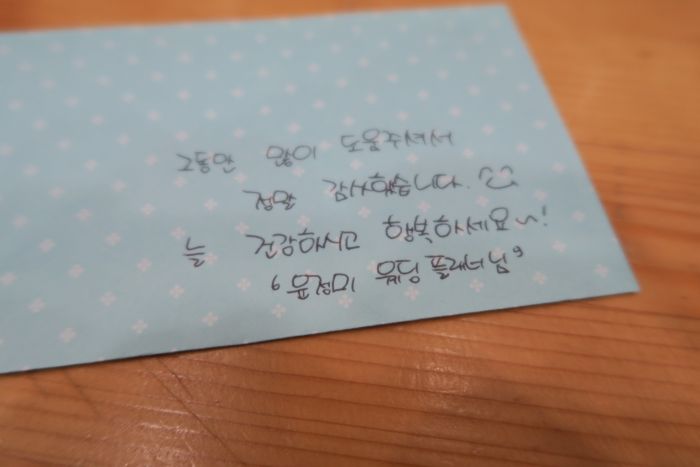 그동안 많이 도움주셔서
정말 감사했습니다.
늘 건강하시고 행복하세요~!
'윤정미 웨딩플래너님'